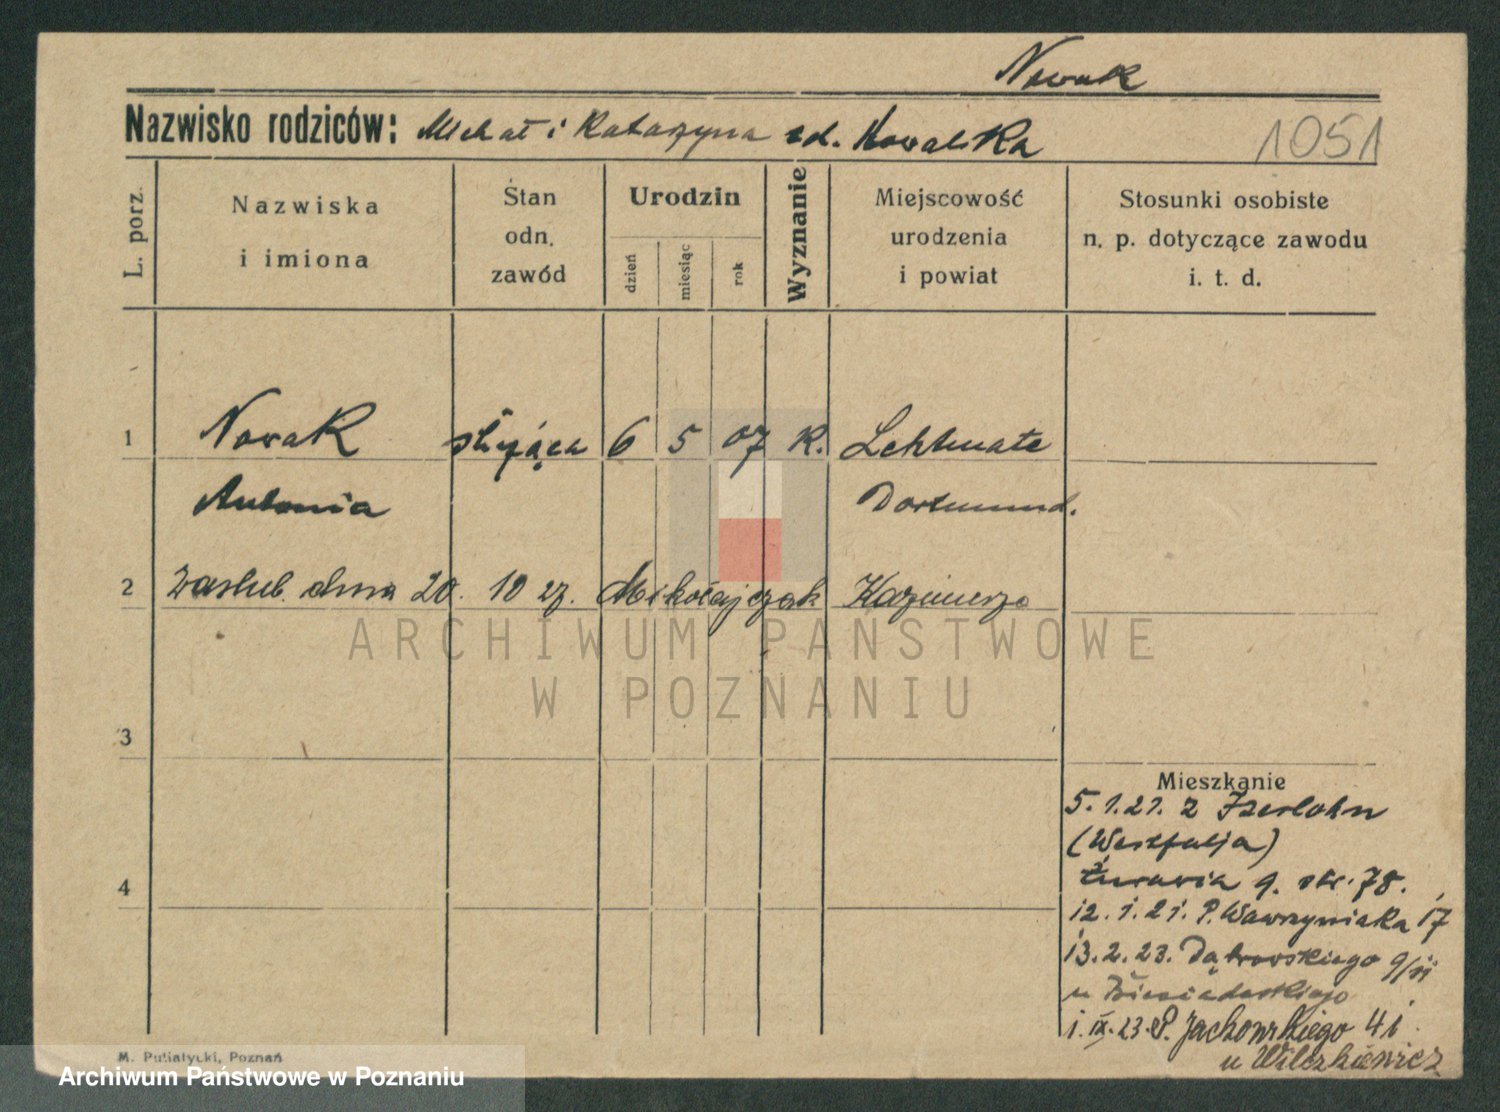 Nowak
Nazwisko rodziców: Michał i Katarzyna zd. Kowalska
1051
L. porz.
Nazwiska i imiona
Stan odn. zawód
Urodzin
dzień
miesiąc
rok
Wyznanie
Miejscowość urodzenia i powiat
Stosunki osobiste n. p. dotyczące zawodu i. t. d.
1 Nowak służąca 6 5 07 K. Lethmate
Antonia Dortmund.
2 Zaslub. dnia 20. 10 27. Mikołajczak Kazimierza
ARCHIWUM PAŃSTWOWE
W POZNANIU
3
4
Mieszkanie
5.1.21. z Iserlohn
(Westfalja)
Żurawia 9. str. 78.
12.1.21. P. Wawrzyniaka 17
13.2.23. Dąbrowskiego 9/II
u Biesiadowskiego
1.IX.23. P. Jackowskiego 41.
u Wilczkiewicz
M. Puliatycki, Poznań
Archiwum Państwowe w Poznaniu